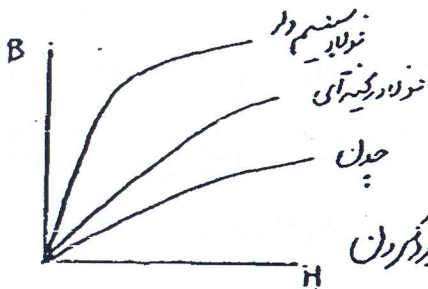 B
فولاد سیلیسیم دار
فولاد ریخته‌ای
چدن
H